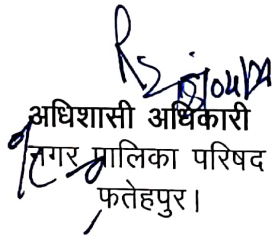 अधिशासी अधिकारी
नगर पालिका परिषद
फतेहपुर।